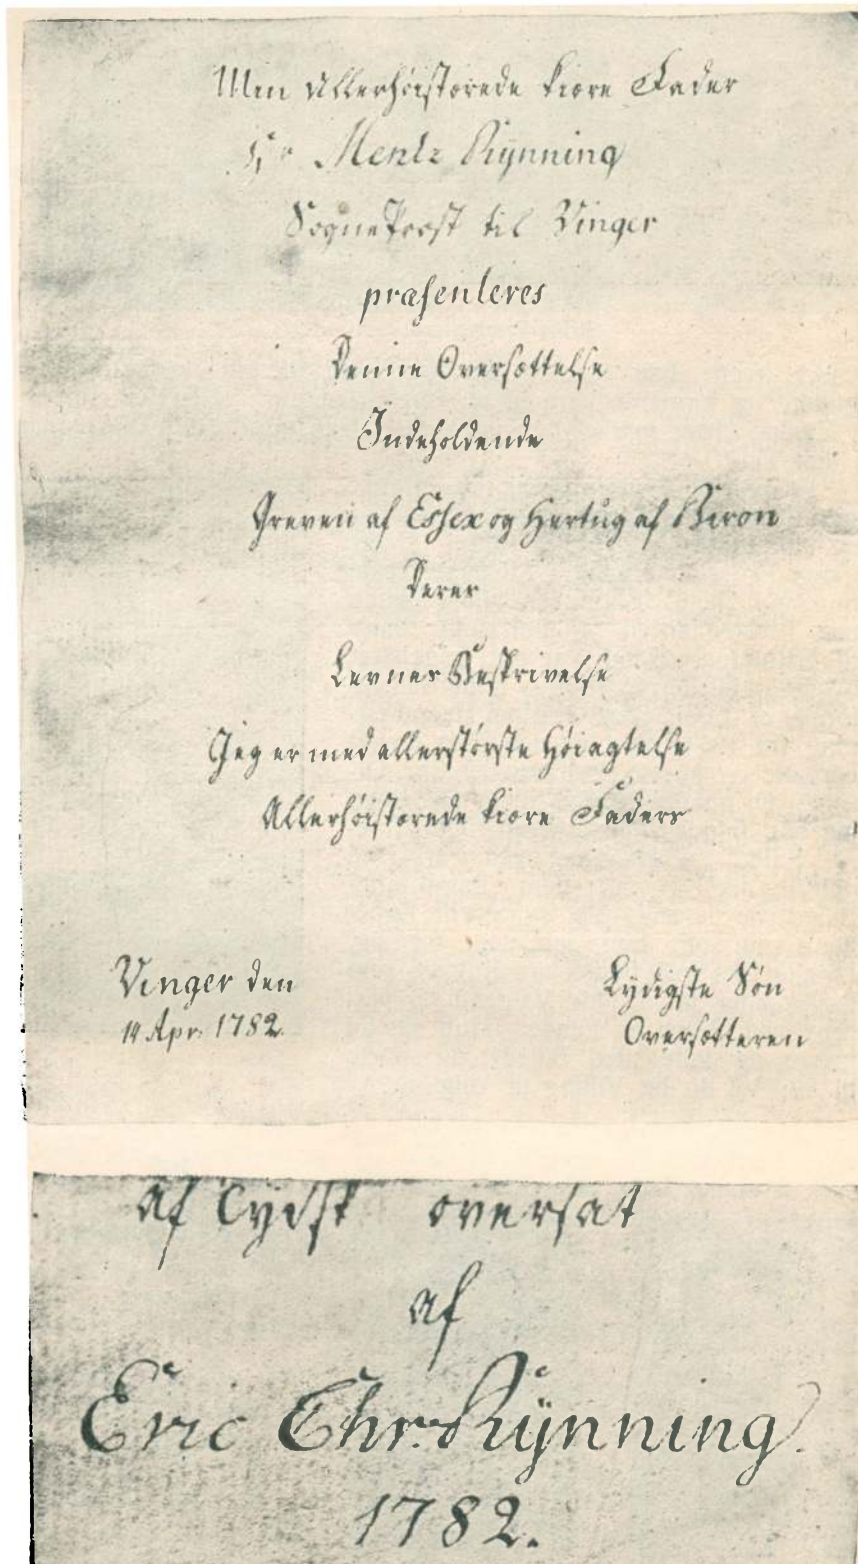 Min Allerhöistærede kiære Fader
Hr Mentz Rÿnning
Sogne Præst til Vinger
præsenteres
Denne Oversættelse
Indeholdende
Greven af Essex og Hertug af Biron
Derer
Levnes Beskrivelse
Jeg er med allerstörste Höiagtelse
Allerhöistærede kiære Faders
Vinger den
14 Apr. 1782.
Lydigste Sön
Oversætteren
af Tydsk oversat
af
Eric Chr. Rÿnning.
1782.